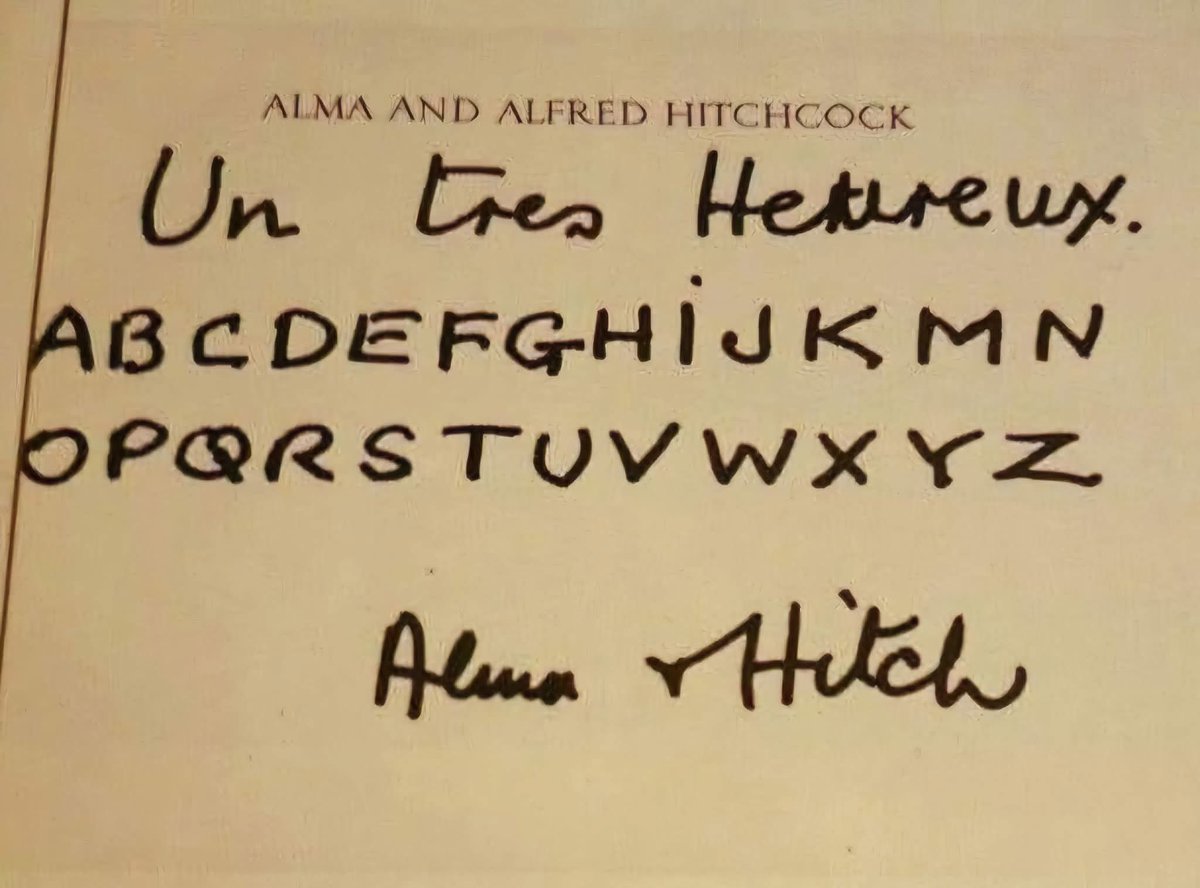 ALMA AND ALFRED HITCHCOCK
Un tres Heureux.
A B C D E F G H i J K M N
O P Q R S T U V W X Y Z
Alma + Hitch